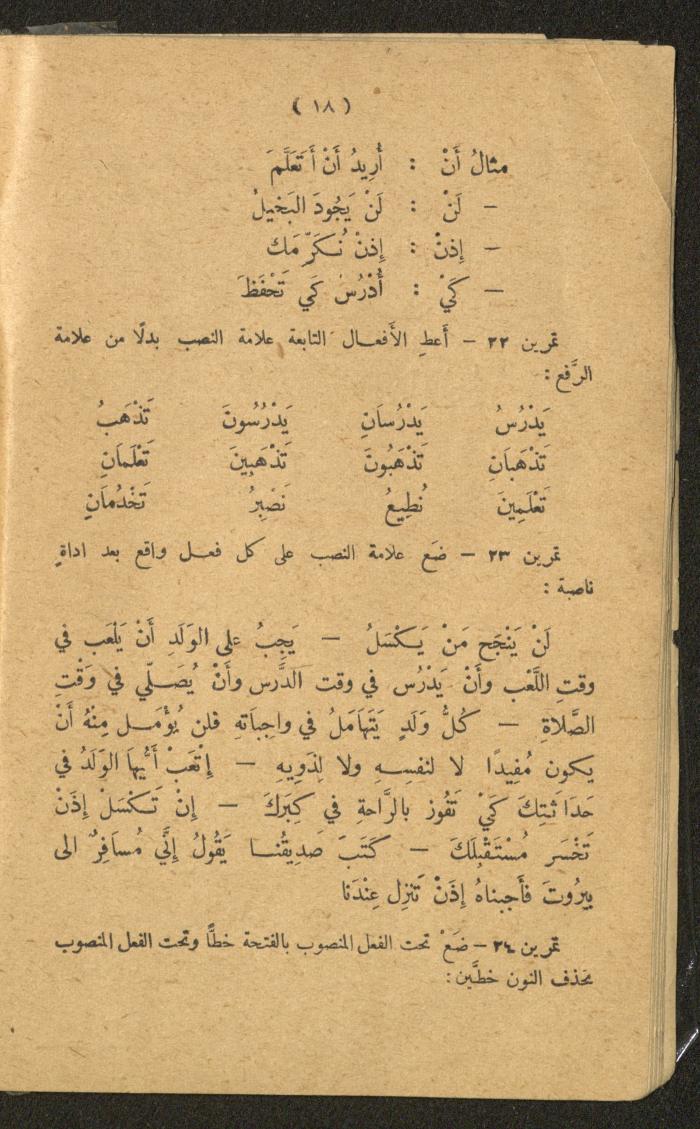 ( ١٨ )
مثالُ أَنْ : أُرِيدُ أَنْ أَتَعَلَّمَ
– لَنْ : لَنْ يَجُودَ البَخِيلُ
– إِذَنْ : إِذَنْ نُكَرِّمَك
– كَيْ : أُدْرُسْ كَي تَحْفَظَ
تمرين ٢٢ – أَعطِ الأَفعال التابعة علامة النصب بدلًا من علامة
الرَّفع :
يَدْرُسُ يَدْرُسَانِ يَدْرُسُونَ تَذْهَبُ
تَذْهَبَانِ تَذْهَبُونَ تَذْهَبِينَ تَعْلَمَانِ
تَعْلَمِينَ نُطِيعُ نَصْبِرُ تَخْدُمَانِ
تمرين ٢٣ – ضَع علامة النصب على كل فعل واقع بعد اداةٍ
ناصبة :
لَنْ يَنْجَح مَنْ يَكْسَلُ – يَجِبُ على الوَلَدِ أَنْ يَلْعَب في
وقتِ اللَّعْب وأَنْ يَدْرُس في وقت الدَّرس وأَنْ يُصَلّي في وَقْتِ
الصَّلاةِ – كُلُّ وَلَدٍ يَتَهَامَلُ في واجِبَاتهِ فلن يُؤْمَل مِنْهُ أَنْ
يكون مُفِيدًا لا لنفسِهِ ولا لِذَوِيهِ – إِتعَبْ أَيُّهَا الوَلَدُ في
حَدَاثَتِكَ كَيْ تَفُوز بالرَّاحةِ في كِبَرِكَ – إِنْ تَكْسَلْ إِذَنْ
تَخْسَر مُسْتَقْبِلَكَ – كَتَبَ صَدِيقُنا يَقُولُ إِنِّي مُسافِرٌ الى
بيرُوتَ فأَجبناهُ إِذَنْ تَنزِل عِنْدَنا
تمرين ٢٤ – ضَعْ تحت الفعل المنصوب بالفتحة خطًّا وتحت الفعل المنصوب
بحذف النون خطَّين :